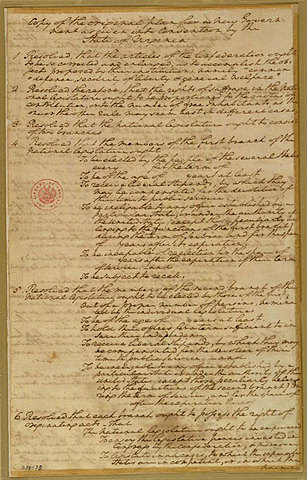 Copy of the original plan for a New Govern-
ment as given into Convention by the
State of Virginia
1 Resolved that the articles of the Confederation ought
to be so corrected and enlarged, as to accomplish the ob-
jects proposed by their institution; namely "common
defence, security of liberty & general welfare"
2 Resolved therefore, that the rights of suffrage in the Nat
ional Legislature ought to be
or the number of free inhabitants, as the
one or the other rule may seem best in different cases
3 Resolved that the national legislature ought to consist
of two branches
4 Resolved that the members of the first branch of the
national legislature ought
to be elected by the people of the several States
every for the term of
To be of the age of years at least
To receive liberal stipends, by which they
may be compensated for the devotion of
their time to public service
To be ineligible to any office established by a
particular State, or under the authority of
the United States, except those
to the functions of the first branch,
during the term of service, and for the space
of years after its expiration;
To be incapable of reelection for the space of
years after the expiration of their term
of service, and
To be subject to recal
5 Resolved that the members of the second branch of the
national legislature ought to be elected by those of the first,
out of a proper number of persons nomina
ted by the individual legislatures
To be of the age of years at least
To hold their offices for a term sufficient to in
sure their independency
To receive liberal stipends, by which they may
be compensated for the devotion of their
time to public service; and
To be ineligible to any office established by a
particular State, or under the authority of the
United States, except those peculiarly belong
ing to the functions of the second branch, du
ring the term of service, and for the space of
after the expiration thereof
6 Resolved that each branch ought to possess the right of
originating acts, that
the national legislature ought to be impowered
to enjoy the legislative powers invested in
Congress by the Confederation, and moreover
To legislate in all cases, to which the separate
States are incompetent, or in which the
harmony